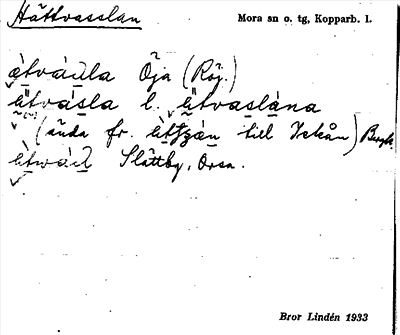 Hättvasslan
Mora sn o. tg, Kopparb. l.
ätvásla Öja (Röj.)
ätvásla l. ätvaslána
(ända fr. till Ickån) Bergk.
Slättby, Orsa.
Bror Lindén 1933